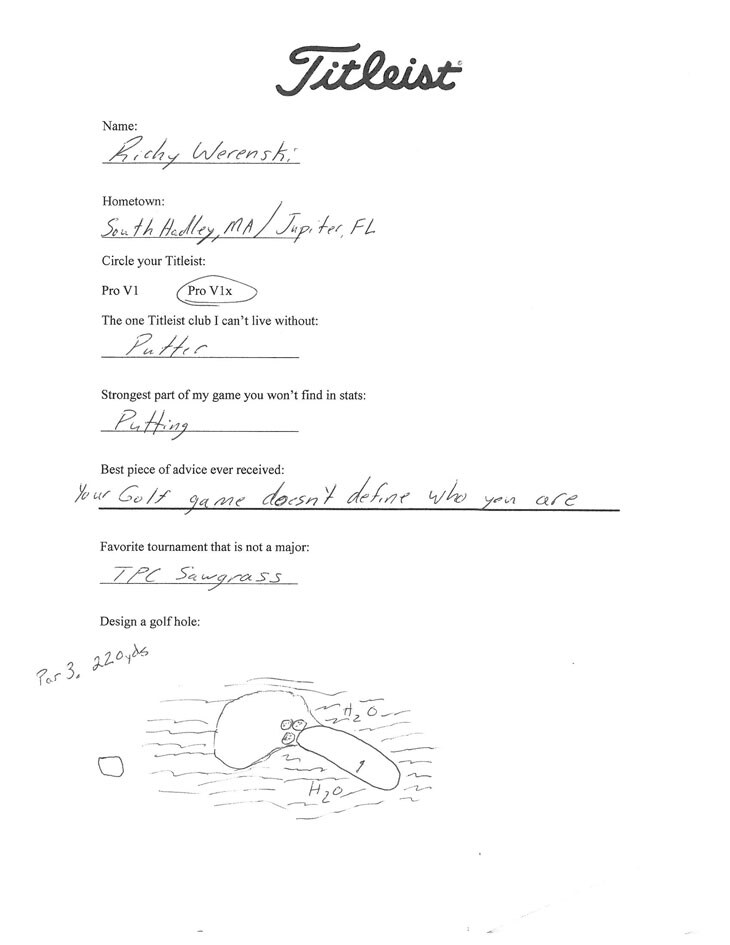 Titleist
Name:
Richy Werenski
Hometown:
South Hadley, MA / Jupiter, FL
Circle your Titleist:
Pro V1 Pro V1x
The one Titleist club I can't live without:
Putter
Strongest part of my game you won't find in stats:
Putting
Best piece of advice ever received:
Your Golf game doesn't define who you are
Favorite tournament that is not a major:
TPC Sawgrass
Design a golf hole:
Par 3. 220yds
H2O
H2O